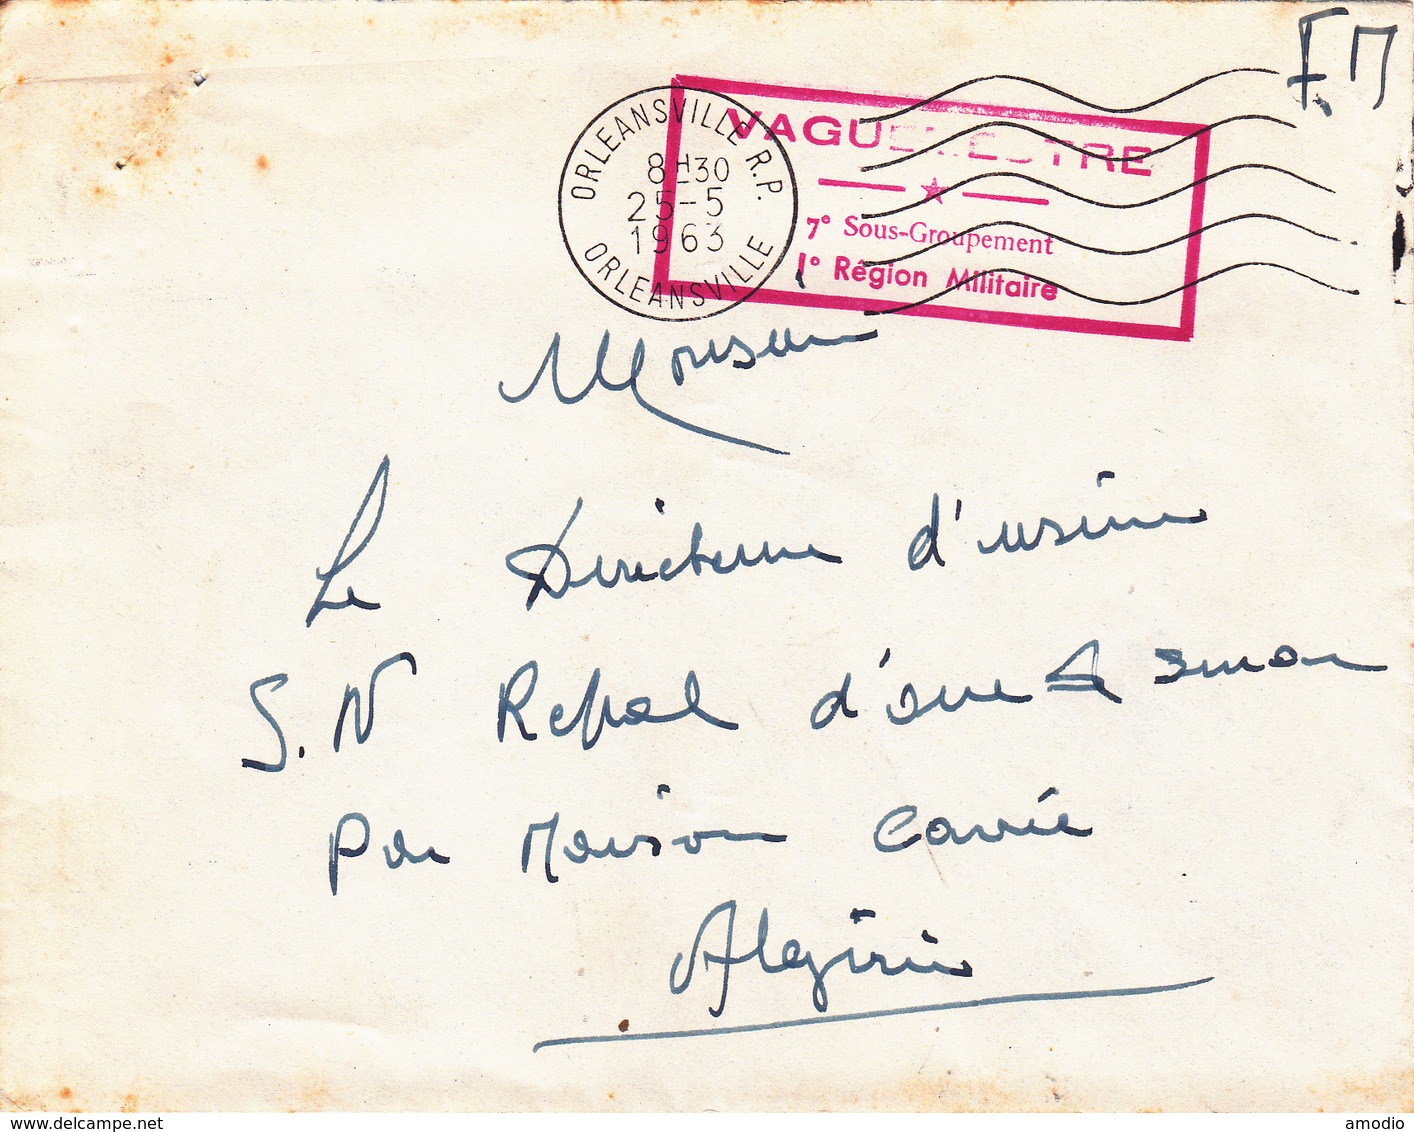 F.M
ORLEANSVILLE R.P.
8H30
25-5
1963
ORLEANSVILLE
VAGUEMESTRE
7° Sous-Groupement
1° Région Militaire
Monsieur
Le Directeur d'usine
S.N Repal d'oued Smar
Par Maison Carrée
Algérie
www.delcampe.net
amodio